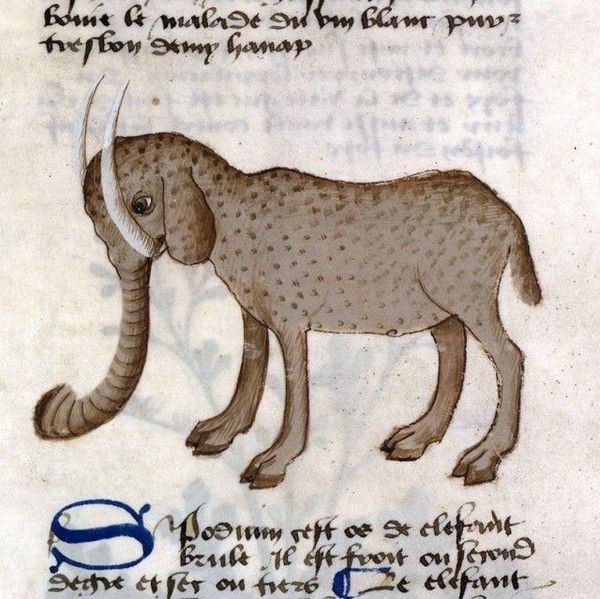 boiue le malade du vin blanc pur ⁊
tresbon demy hanap
Spodium cest os de elefant
brule Il est froit ou second
degre et sec ou tiers Le elefant